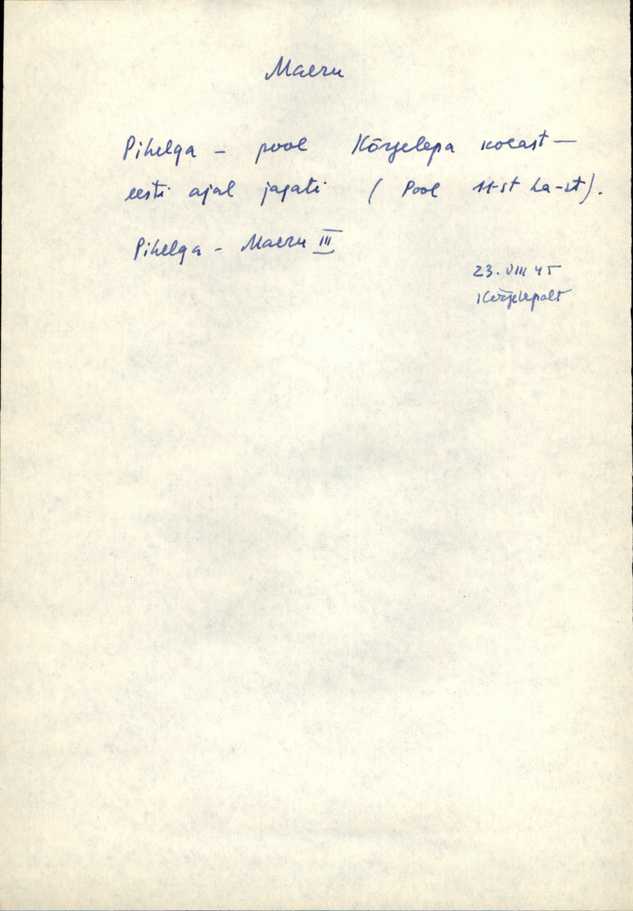 Maeru
Pihelga – pool Kõrjelepa kohast –
eesti ajal jagati ( Pool 11-st ha-st).
Pihelga - Maeru III
23. VIII 45
Kõrjelepalt